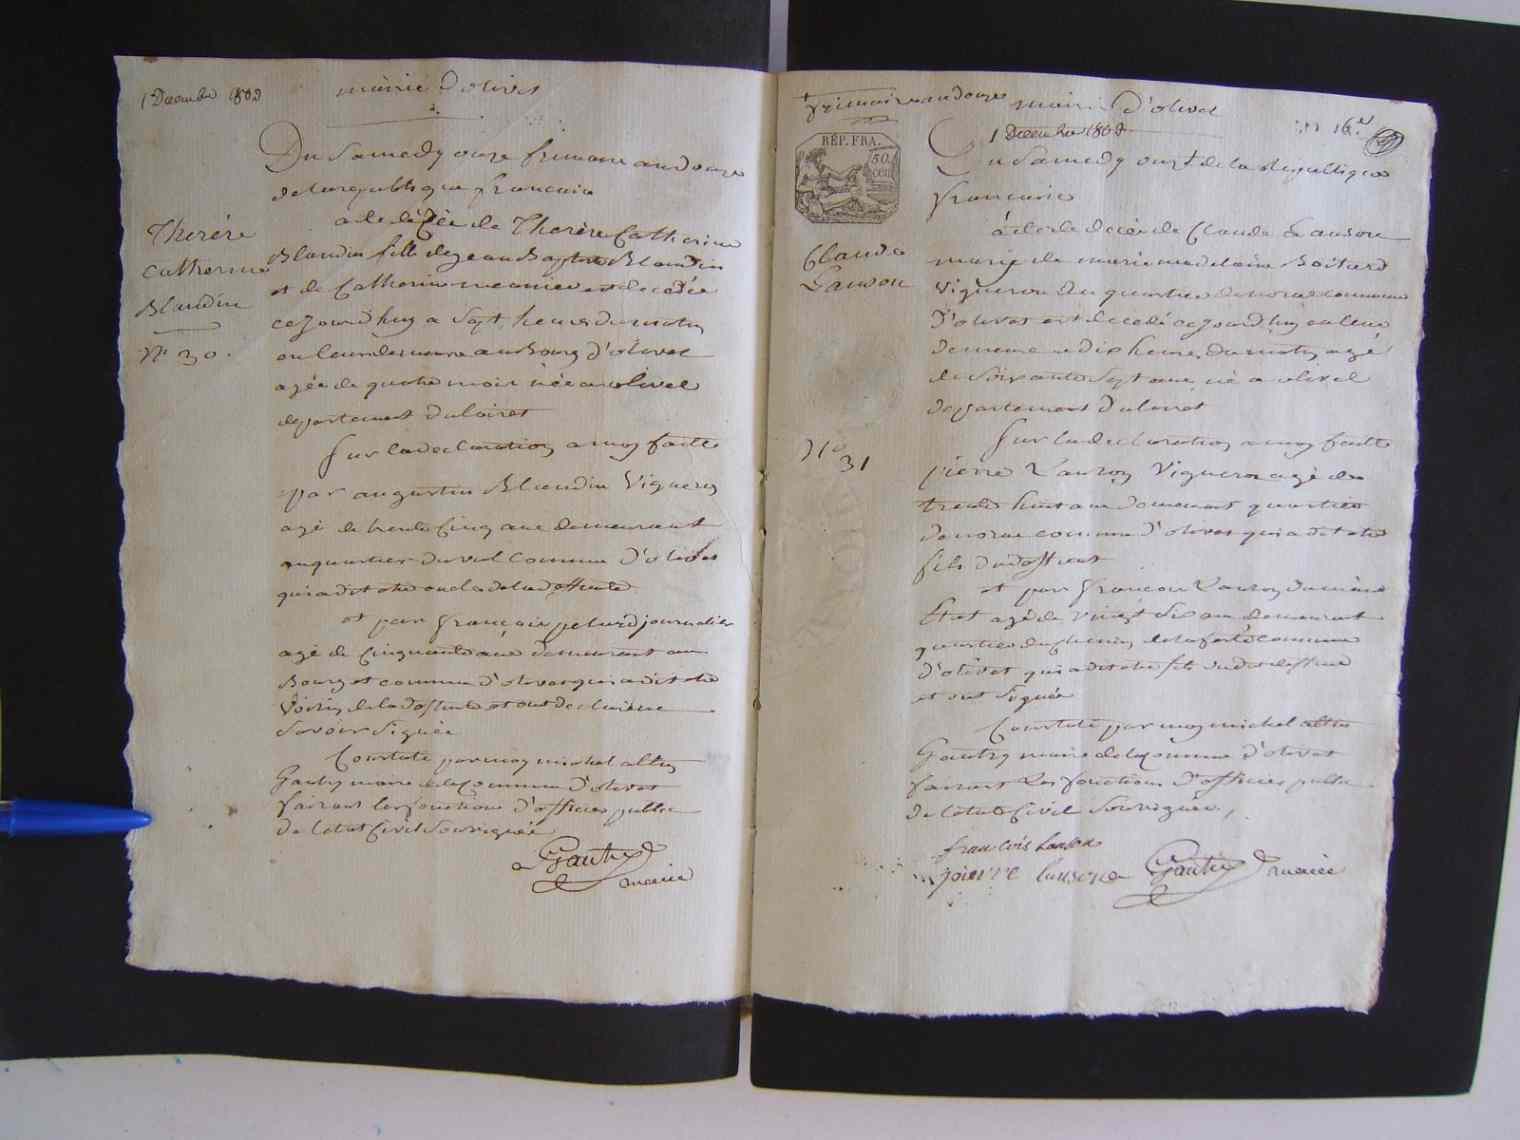 1 Decembre 1803
mairie d'olivet
Du Samedy onze frimaire an Douze
de la republique francaise
acte de décée de Therèse Catherine
Blandin fille de jean Baptiste Blandin
et de Catherine meunier est decedée
ce jourd'huy a Sept heures du matin
en leur demeure au Bourg d'olivet
agée de quatre mois née a olivet
departement du loiret
Sur la declaration a moy faitte
par augustin Blandin Vigneron
agé de trente Cinq ans demeurant
au quartier du val Commune d'olivet
qui a dit etre oncle de la deffunte
et par françois peluré journalier
agé de Cinquante ans demeurant au
Bourg et commune d'olivet qui a dit etre
Voisin de la deffunte et ont declarée ne
Savoir Signée
Constaté par moy michel
Gautry maire de la Commune d'olivet
faisant les fonctions d'officier public
de l'etat Civil Soussignée
Gautry
maire
Therése
Catherine
Blandin
N° 30.
frimaire an douze
mairie d'olivet
1 Decembre 1803
16
RÉP. FRA.
50
CEN
Du Samedy onze de la Republique
francaise
acte de decée de Claude Lanson
marie de marie madelaine Boitard
Vigneron du quartier de noras commune
d'olivet est decedé ce jourd'huy en leur
demeure a Dix heures du matin agé
de Soixante Sept ans né a olivet
departement du loiret
Sur la declaration a moy faitte
pierre Lanson Vigneron agé de
trente huit ans demeurant quartier
de noras commune d'olivet qui a dit etre
fils du deffunt
et par francois Lanson du même
Etat agé de Vingt Six ans demeurant
quartier du chemin de la ferté commune
d'olivet qui a dit etre fils dudit deffunt
et ont Signée
Constaté par moy michel
Gautry maire de la Commune d'olivet
faisant Les fonctions d'officier public
de l'etat Civil Soussignée
francois lanson
pierre lanson
Gautry
maire
Claude
Lanson
N°
31